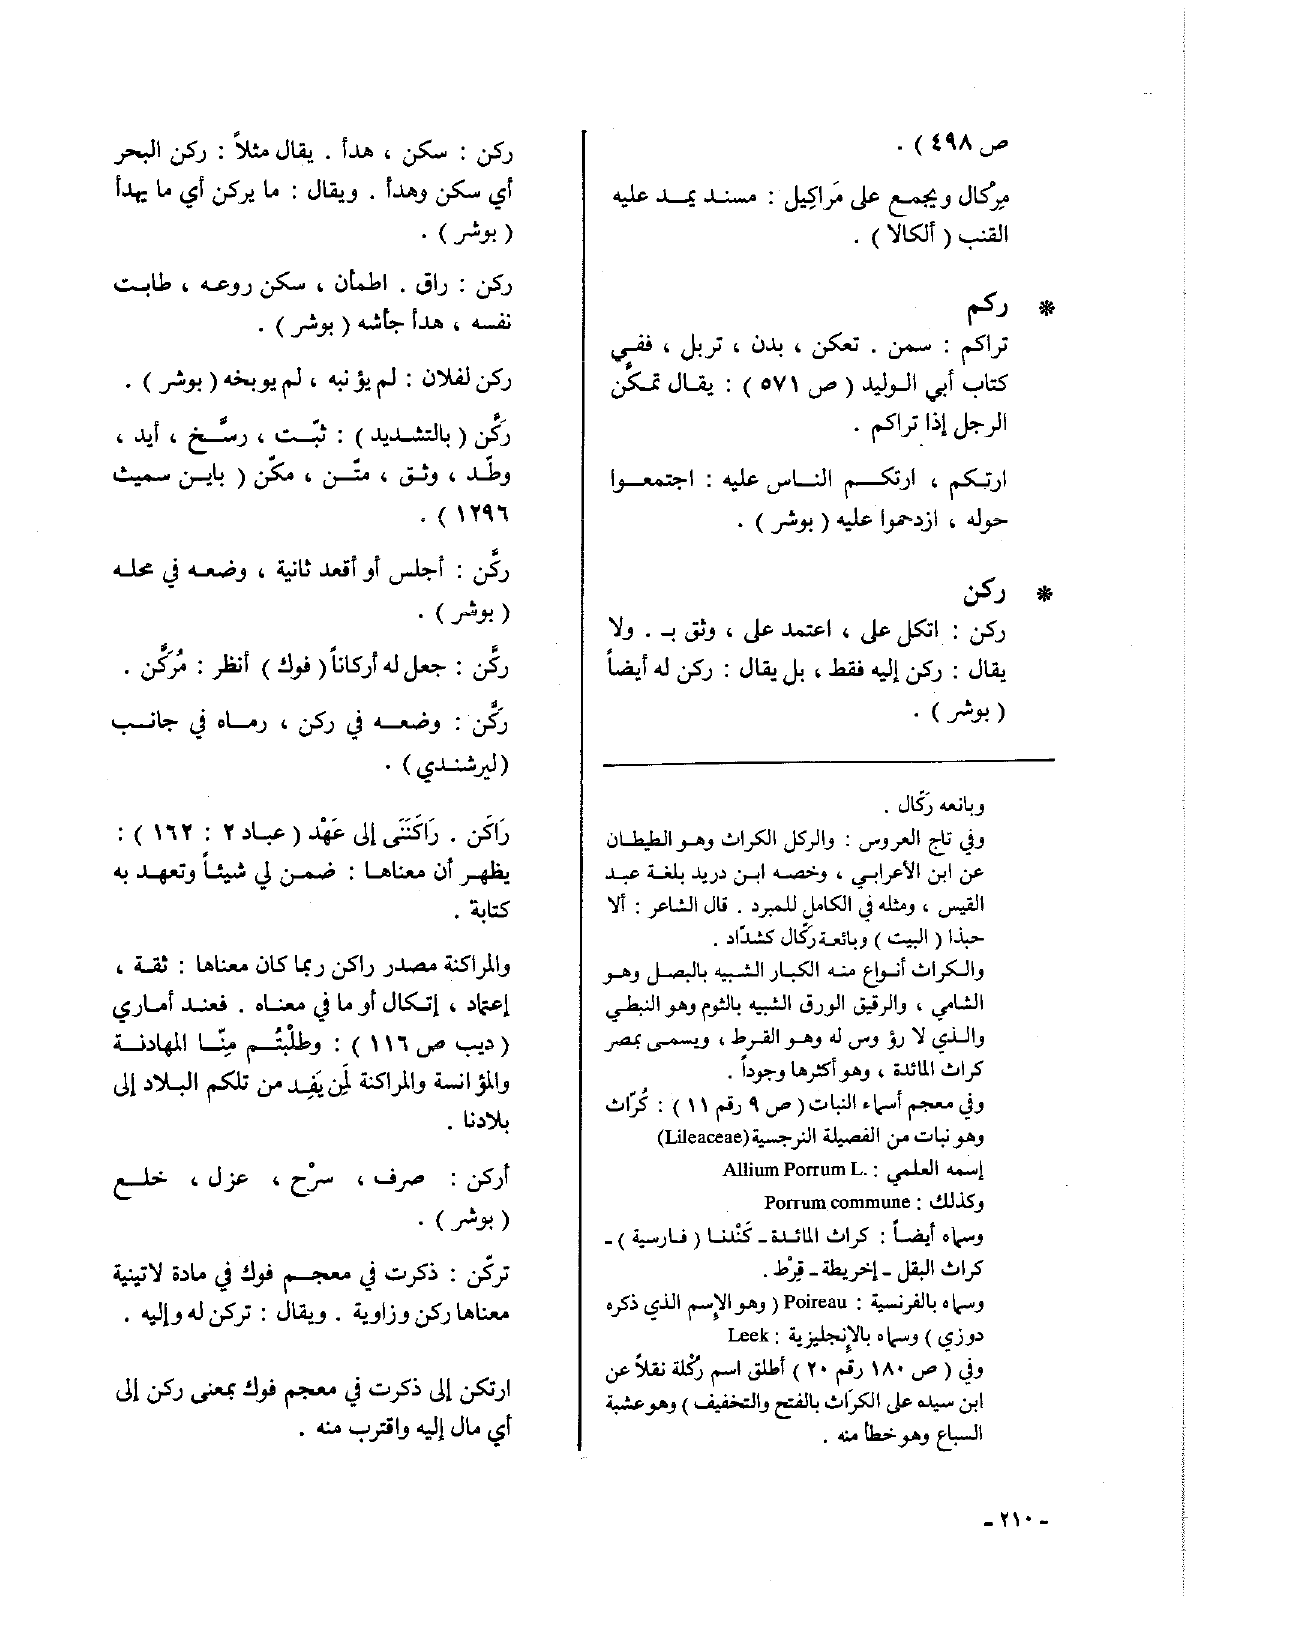 ص ٤٩٨ ) .
مِركال ويجمع على مَراكيل : مسند يمد عليه
القنب ( ألكالا ) .
* ركم
تراكم : سمن . تعكن ، بدن ، تربل ، ففي
كتاب أبي الوليد ( ص ٥٧١ ) : يقال تمكّن
الرجل إذا تراكم .
ارتكم ، ارتكم الناس عليه : اجتمعوا
حوله ، ازدحموا عليه ( بوشر ) .
* ركن
ركن : اتكل على ، اعتمد على ، وثق بـ . ولا
يقال : ركن إليه فقط ، بل يقال : ركن له أيضاً
( بوشر ) .
وبائعه ركّال .
وفي تاج العروس : والركل الكراث وهو الطيطان
عن ابن الأعرابي ، وخصه ابن دريد بلغة عبد
القيس ، ومثله في الكامل للمبرد . قال الشاعر : ألا
حبذا ( البيت ) وبائعة ركّال كشدّاد .
والكراث أنواع منه الكبار الشبيه بالبصل وهو
الشامي ، والرقيق الورق الشبيه بالثوم وهو النبطي
والذي لا رؤوس له وهو القرط ، ويسمى بمصر
كراث المائدة ، وهو أكثرها وجوداً .
وفي معجم أسماء النبات ( ص ٩ رقم ١١ ) : كُرّاث
وهو نبات من الفصيلة النرجسية (Lileaceae)
إسمه العلمي : Allium Porrum L.
وكذلك : Porrum commune
وسماه أيضاً : كراث المائدة ـ كَنْدنا ( فارسية ) ـ
كراث البقل ـ إخريطة ـ قِرْط .
وسماه بالفرنسية : Poireau ( وهو الإسم الذي ذكره
دوزي ) وسماه بالإنجليزية : Leek
وفي ( ص ١٨٠ رقم ٢٠ ) أطلق اسم ركْلة نقلاً عن
ابن سيده على الكرَاث بالفتح والتخفيف ) وهو عشبة
السباع وهو خطأ منه .
ركن : سكن ، هدأ . يقال مثلاً : ركن البحر
أي سكن وهدأ . ويقال : ما يركن أي ما يهدأ
( بوشر ) .
ركن : راق . اطمأن ، سكن روعه ، طابت
نفسه ، هدأ جأشه ( بوشر ) .
ركن لفلان : لم يؤنبه ، لم يوبخه ( بوشر ) .
ركَّن ( بالتشديد ) : ثبّت ، رسَّخ ، أيد ،
وطّد ، وثق ، متّن ، مكّن ( باين سميث
١٢٩٦ ) .
ركَّن : أجلس أو أقعد ثانية ، وضعه في محله
( بوشر ) .
ركَّن : جعل له أركاناً ( فوك ) أنظر : مُركَّن .
ركَّن : وضعه في ركن ، رماه في جانب
(ليرشندي) .
رَاكَن . رَاكَنَنَى إلى عَهْد ( عباد ٢ : ١٦٢ ) :
يظهر أن معناها : ضمن لي شيئاً وتعهد به
كتابة .
والمراكنة مصدر راكن ربما كان معناها : ثقة ،
إعتماد ، إتكال أو ما في معناه . فعند أماري
( ديب ص ١١٦ ) : وطلبْتُم مِنّا المهادنة
والمؤانسة والمراكنة لِمَن يَفِد من تلكم البلاد إلى
بلادنا .
أركن : صرف ، سرْح ، عزل ، خلع
( بوشر ) .
تركّن : ذكرت في معجم فوك في مادة لاتينية
معناها ركن وزاوية . ويقال : تركن له وإليه .
ارتكن إلى ذكرت في معجم فوك بمعنى ركن إلى
أي مال إليه واقترب منه .
- ٢١٠ -